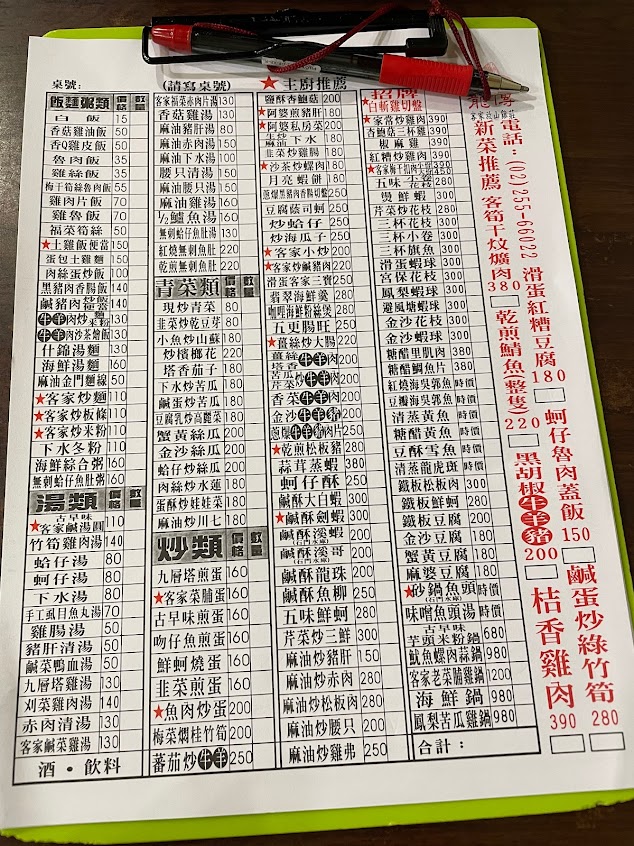 桌號： (請寫桌號) ★主廚推薦
飯麵粥類 價格 數量
白飯 15
香菇雞油飯 50
香Q雞皮飯 50
魯肉飯 35
雞絲飯 35
梅干筍絲魯肉飯 55
雞肉片飯 70
雞魯飯 70
福菜筍絲 50
★土雞飯便當 150
蛋包土雞麵 150
肉絲蛋炒飯 100
黑豬肉香腸飯 140
鹹豬肉炒飯 140
牛羊肉炒麵 130
牛羊肉沙茶燴飯 130
什錦湯麵 130
海鮮湯麵 160
麻油金門麵線 50
★客家炒麵 110
★客家炒板條 110
★客家炒米粉 110
下水冬粉 110
海鮮綜合粥 160
無刺蛤仔魚肚粥 160
湯類 價格 數量
古早味
★客家鹹湯圓 110
竹筍雞肉湯 140
蛤仔湯 80
蚵仔湯 80
下水湯 80
手工虱目魚丸湯 70
雞腸湯 50
豬肝清湯 130
鹹菜鴨血湯 50
九層塔雞湯 130
刈菜雞肉湯 140
赤肉清湯 130
客家鹹菜雞湯 130
酒・飲料
客家福菜赤肉片湯 130
香菇雞湯 130
麻油豬肝湯 80
麻油赤肉湯 150
麻油下水湯 100
腰只清湯 150
麻油腰只湯 150
麻油雞湯 160
½鱸魚湯 160
無刺蛤仔魚肚湯 130
紅燒無刺魚肚 220
乾煎無刺魚肚 220
青菜類 價格 數量
現炒青菜 80
韭菜炒乾豆芽 80
小魚炒山蘇 180
炒檳榔花 220
塔香茄子 180
下水炒苦瓜 180
鹹蛋炒苦瓜 180
豆腐乳炒高麗菜 180
蟹黃絲瓜 200
金沙絲瓜 200
蛤仔炒絲瓜 200
肉絲炒水蓮 180
蛋酥炒娃娃菜 180
麻油炒川七 180
炒類 價格 數量
九層塔煎蛋 160
★客家菜脯蛋 160
古早味煎蛋 160
吻仔魚煎蛋 160
鮮蚵燒蛋 160
韭菜煎蛋 160
★魚肉炒蛋 200
梅菜燜桂竹筍 200
蕃茄炒牛羊 250
鹽酥杏鮑菇 200
★阿婆煎豬肝 180
★阿婆私房菜 200
下水 180
韭菜炒雞腸 180
★沙茶炒螺肉 180
月亮蝦餅 180
蔥爆黑豬肉香腸切盤 250
豆腐蔭司蚵 250
炒蛤仔 250
炒海瓜子 250
★客家小炒 200
★客家炒鹹豬肉 220
滑蛋客家三寶 250
翡翠海鮮羹 280
咖哩海鮮粉絲煲 280
五更腸旺 250
★薑絲炒大腸 220
薑絲 塔香 牛羊肉 200
苦瓜炒 芹菜炒 牛羊肉 200
香菜牛羊肉 200
金沙牛羊豬 200
蔥爆牛羊豬肉片 250
★乾煎松板豬 280
蒜茸蒸蝦 380
蚵仔酥 250
鹹酥大白蝦 300
★鹹酥劍蝦 300
鹹酥溪蝦 200
(石門水庫)
鹹酥溪哥 200
(石門水庫)
鹹酥龍珠 250
鹹酥魚柳 250
五味鮮蚵 280
芹菜炒三鮮 300
麻油炒豬肝 150
麻油炒赤肉 280
麻油炒松板肉 280
麻油炒腰只 200
麻油炒雞弗 250
招牌
★白斬雞切盤
★家常炒雞肉 390
杏鮑菇三杯雞 390
椒麻雞 390
紅糟炒雞肉 390
★客家梅干扣肉
五味小卷 花枝 280
燙鮮蝦 300
芹菜炒花枝 280
三杯花枝 300
三杯小卷 300
三杯旗魚 300
滑蛋蝦球 300
宮保花枝 300
鳳梨蝦球 300
避風塘蝦球 300
金沙花枝 300
金沙蝦球 300
糖醋里肌肉 380
糖醋鯛魚片 380
紅燒海吳郭魚 時價
豆瓣海吳郭魚 時價
清蒸黃魚 時價
糖醋黃魚 時價
豆酥雪魚 時價
清蒸龍虎斑 時價
鐵板松板肉 300
鐵板鮮蚵 280
鐵板豆腐 200
金沙豆腐 180
蟹黃豆腐 200
麻婆豆腐 180
★砂鍋魚頭 時價
(石門水庫)
味噌魚頭湯 時價
古早味
芋頭米粉鍋 680
魷魚螺肉蒜鍋 980
客家老菜脯雞鍋 1200
海鮮鍋 980
鳳梨苦瓜雞鍋 980
合計：
電話：(02)255-66022
新菜推薦
客筍干炆爌肉 380
滑蛋紅糟豆腐 180
乾煎鯖魚(整隻) 220
蚵仔魯肉蓋飯 150
黑胡椒牛羊豬 200
鹹蛋炒綠竹筍 280
桔香雞肉 390